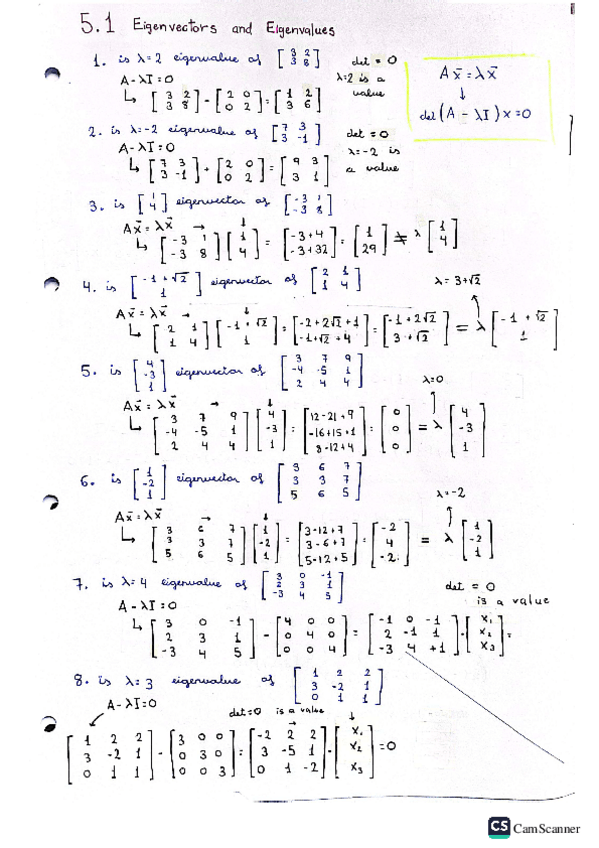 5.1 Eigenvectors and Eigenvalues
1. is λ=2 eigenvalue of [3 2; 3 8] det = 0
A-λI=0 λ=2 is a value
↳ [3 2; 3 8] - [2 0; 0 2] = [1 2; 3 6]
Ax⃗ = λx⃗
↓
det(A - λI)x=0
2. is λ=-2 eigenvalue of [7 3; 3 -1] det = 0
A-λI=0 λ=-2 is a value
↳ [7 3; 3 -1] + [2 0; 0 2] = [9 3; 3 1]
3. is [1; 4] eigenvector of [-3 1; -3 8]
Ax⃗ = λx⃗
↳ [-3 1; -3 8] [1; 4] = [-3+4; -3+32] = [1; 29] ≠ λ [1; 4]
4. is [-1+√2; 1] eigenvector of [2 1; 1 4] λ= 3+√2
Ax⃗ = λx⃗
↳ [2 1; 1 4] [-1+√2; 1] = [-2+2√2+1; -1+√2+4] = [-1+2√2; 3+√2] = λ [-1+√2; 1]
5. is [4; -3; 1] eigenvector of [3 7 9; -4 -5 1; 2 4 4]
Ax⃗ = λx⃗ λ=0
↳ [3 7 9; -4 -5 1; 2 4 4] [4; -3; 1] = [12-21+9; -16+15+1; 8-12+4] = [0; 0; 0] = λ [4; -3; 1]
6. is [1; -2; 1] eigenvector of [3 6 7; 3 3 7; 5 6 5]
Ax⃗ = λx⃗ λ=-2
↳ [3 6 7; 3 3 7; 5 6 5] [1; -2; 1] = [3-12+7; 3-6+7; 5-12+5] = [-2; 4; -2] = λ [1; -2; 1]
7. is λ=4 eigenvalue of [3 0 -1; 2 3 1; -3 4 5] det = 0
A-λI=0 is a value
↳ [3 0 -1; 2 3 1; -3 4 5] - [4 0 0; 0 4 0; 0 0 4] = [-1 0 -1; 2 -1 1; -3 4 +1] · [x₁; x₂; x₃] =
8. is λ=3 eigenvalue of [1 2 2; 3 -2 1; 0 1 1]
A-λI=0 det=0 is a value
[1 2 2; 3 -2 1; 0 1 1] - [3 0 0; 0 3 0; 0 0 3] = [-2 2 2; 3 -5 1; 0 1 -2] · [x₁; x₂; x₃] = 0
CS CamScanner